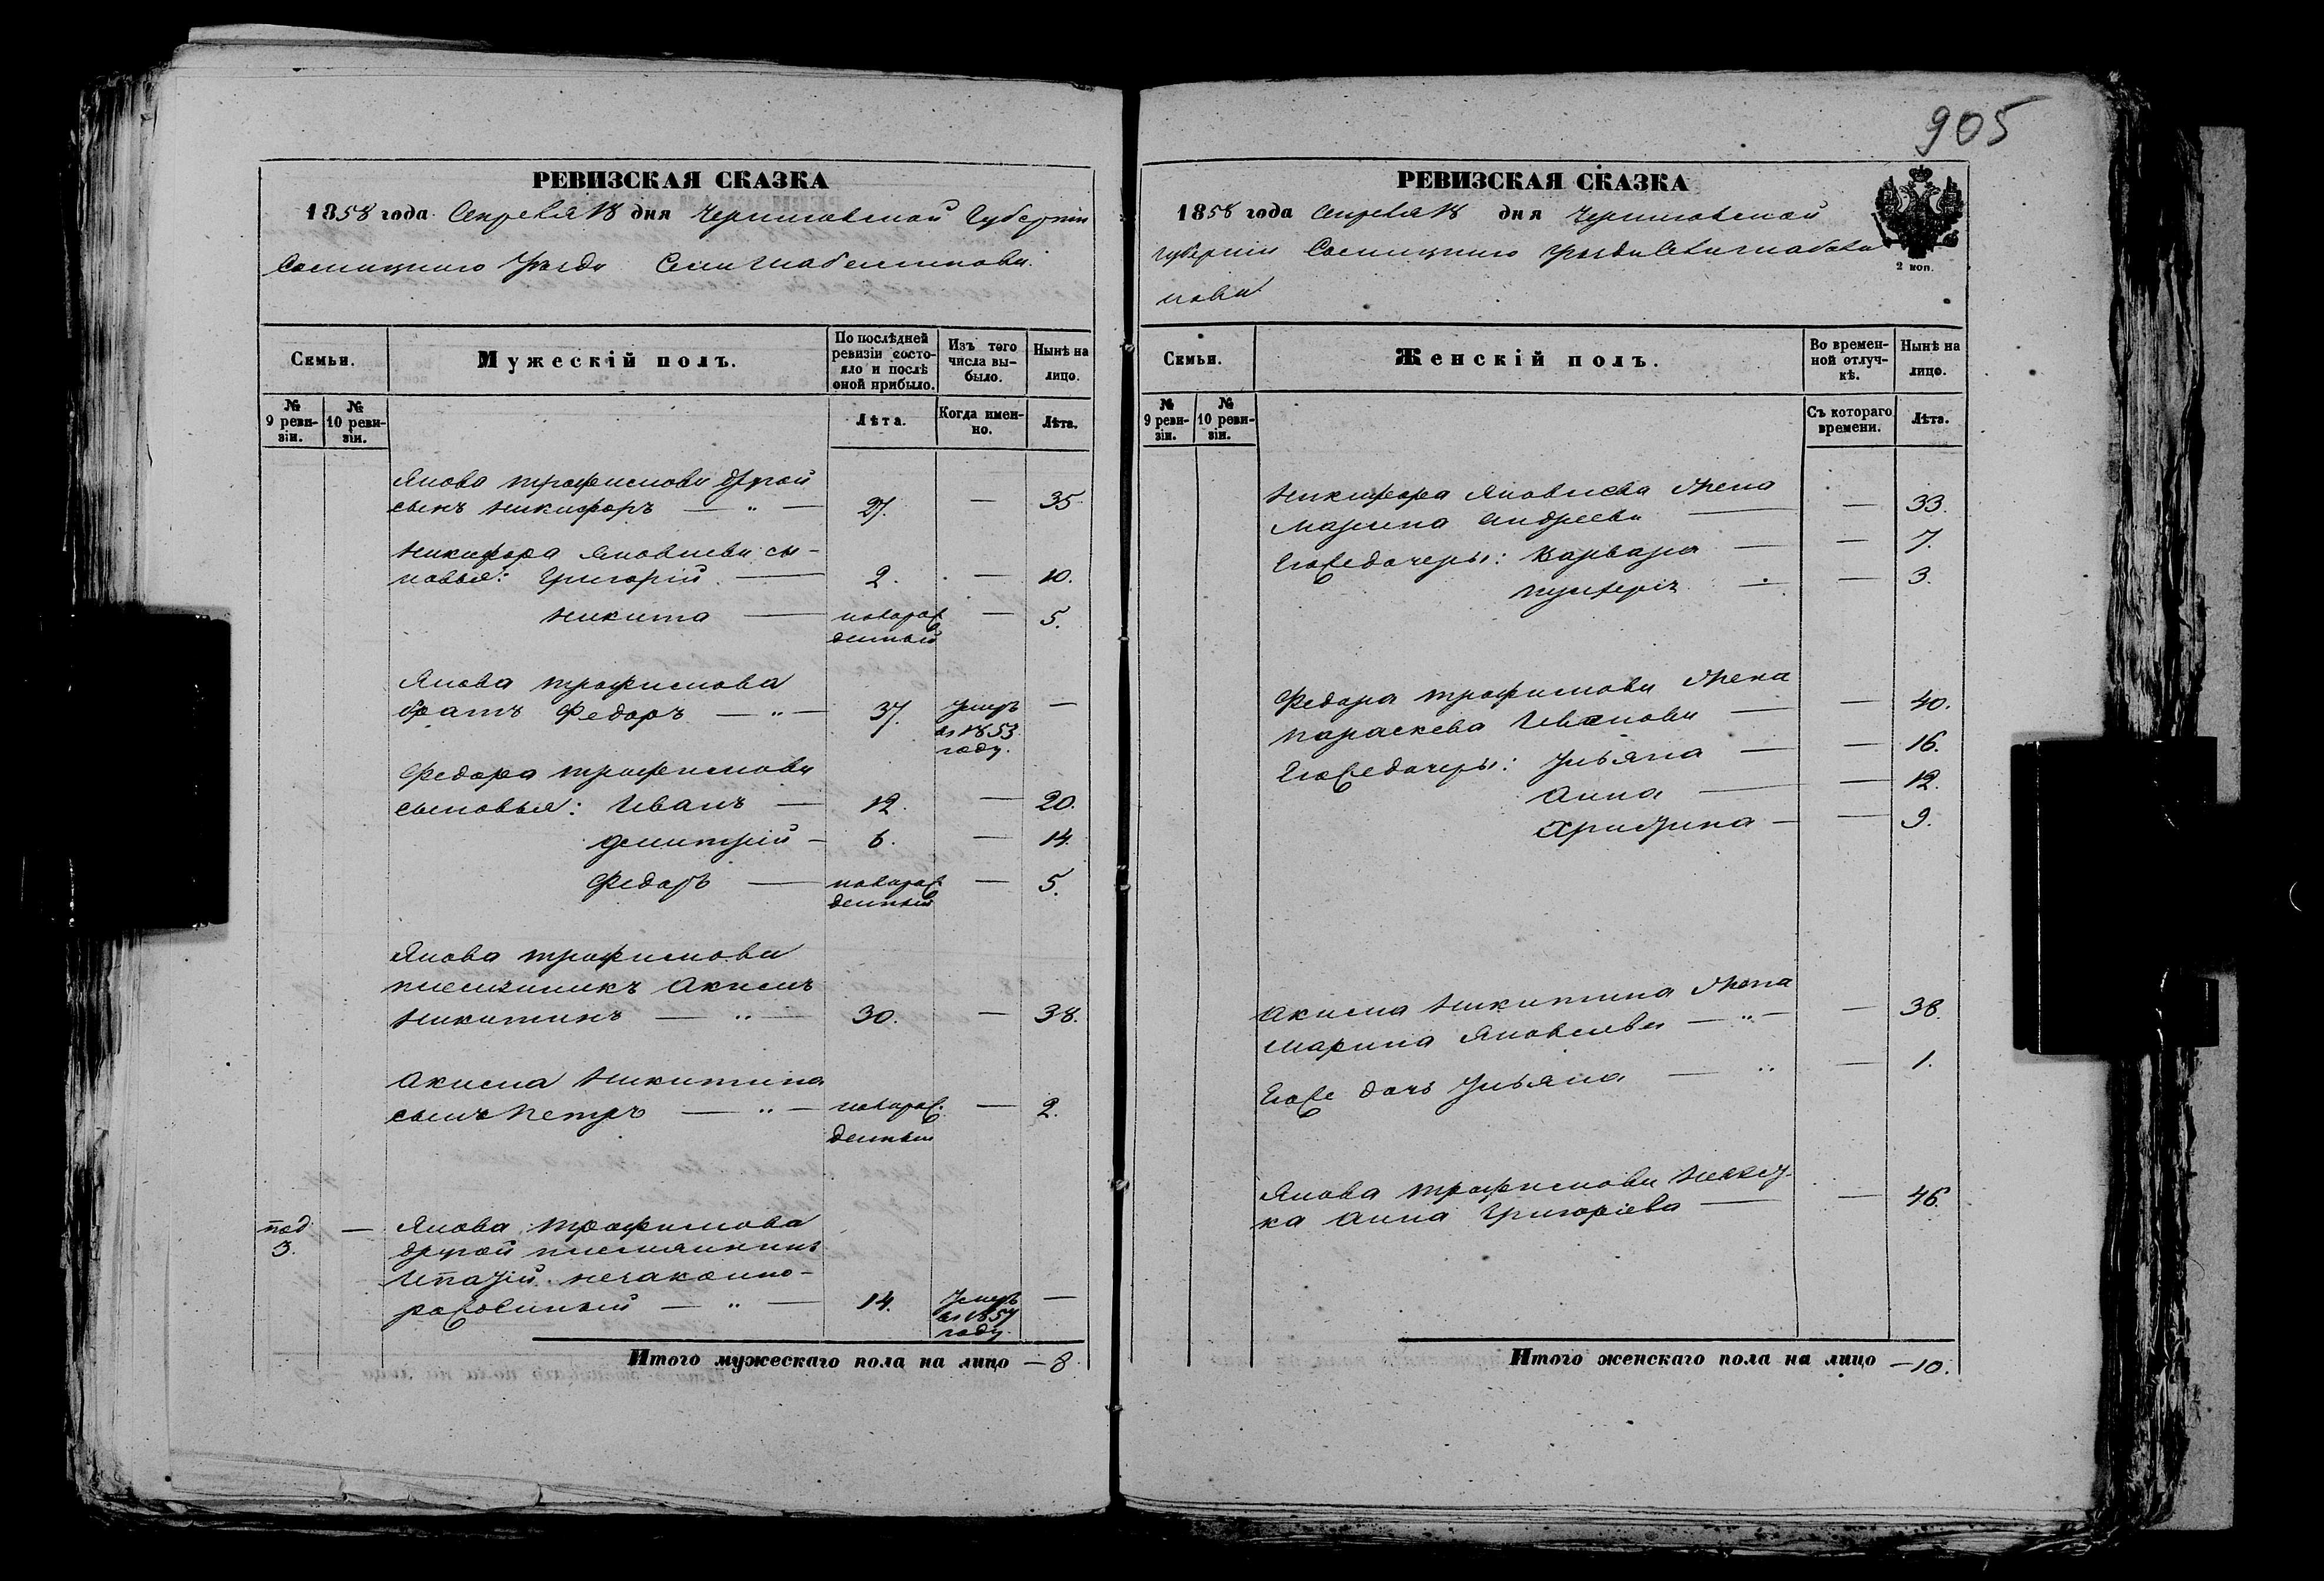 905
РЕВИЗСКАЯ СКАЗКА
1858 года Апреля 18 дня Черниговской Губернии
Сосницкаго Уезда Села
По послѣдней ревизіи состояло и послѣ оной прибыло.
Изъ того числа выбыло.
Нынѣ на лицо.
Семьи.
Мужескій полъ.
№ 9 ревизіи.
№ 10 ревизіи.
Лѣта.
Когда именно.
Лѣта.
Якова Трофимова другой
сынъ Никифоръ — " — 27. — 35
Никифора Яковлева сы-
новья: Григорій — 2. — 10.
Никита — новорож
денный — 5.
Якова Трофимова
братъ Федоръ — " — 37. Умеръ —
въ 1853
году.
Федора Трофимова
сыновья: Иванъ — 12. — 20.
Дмитрій — 6. — 14.
Федоръ — новорож
денный — 5.
Якова Трофимова
племянникъ Акимъ
Никитинъ — " — 30. — 38.
Акима Никитина
сынъ Петръ — " — новорож.
денный — 2.
под 3. — Якова Трофимова
другой племянникъ
незаконно-
рожденный — " — 14. Умеръ —
въ 1857
году.
Итого мужескаго пола на лицо — 8.
РЕВИЗСКАЯ СКАЗКА
1858 года Апреля 18 дня Черниговской
Губернии Сосницкаго уезда
нова
2 коп.
Семьи.
Женскій полъ.
Во временной отлучкѣ.
Нынѣ на лицо.
№ 9 ревизіи.
№ 10 ревизіи.
Съ котораго времени.
Лѣта.
Никифора Яковлева Жена
Марина Андреева — — 33.
Егоже дочери: Варвара — — 7.
— — 3.
Федора Трофимова Жена
Параскева Иванова — — 40.
Егоже дочери: Ульяна — — 16.
Анна — — 12.
Христина — — 9.
Акима Никитина Жена
Марина Яковлева — " — — 38.
Егоже дочь Ульяна — " — 1.
Якова Трофимова Невест-
ка Анна Григорiева — — 46.
Итого женскаго пола на лицо — 10.